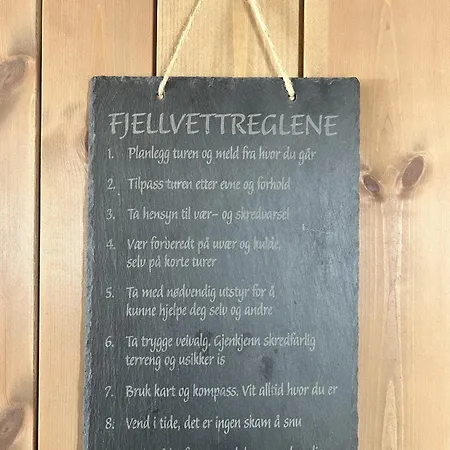 FJELLVETTREGLENE
1. Planlegg turen og meld fra hvor du går
2. Tilpass turen etter evne og forhold
3. Ta hensyn til vær- og skredvarsel
4. Vær forberedt på uvær og kulde,
selv på korte turer
5. Ta med nødvendig utstyr for å
kunne hjelpe deg selv og andre
6. Ta trygge velvalg. Gjenkjenn skredfarlig
terreng og usikker is
7. Bruk kart og kompass. Vit alltid hvor du er
8. Vend i tide, det er ingen skam å snu